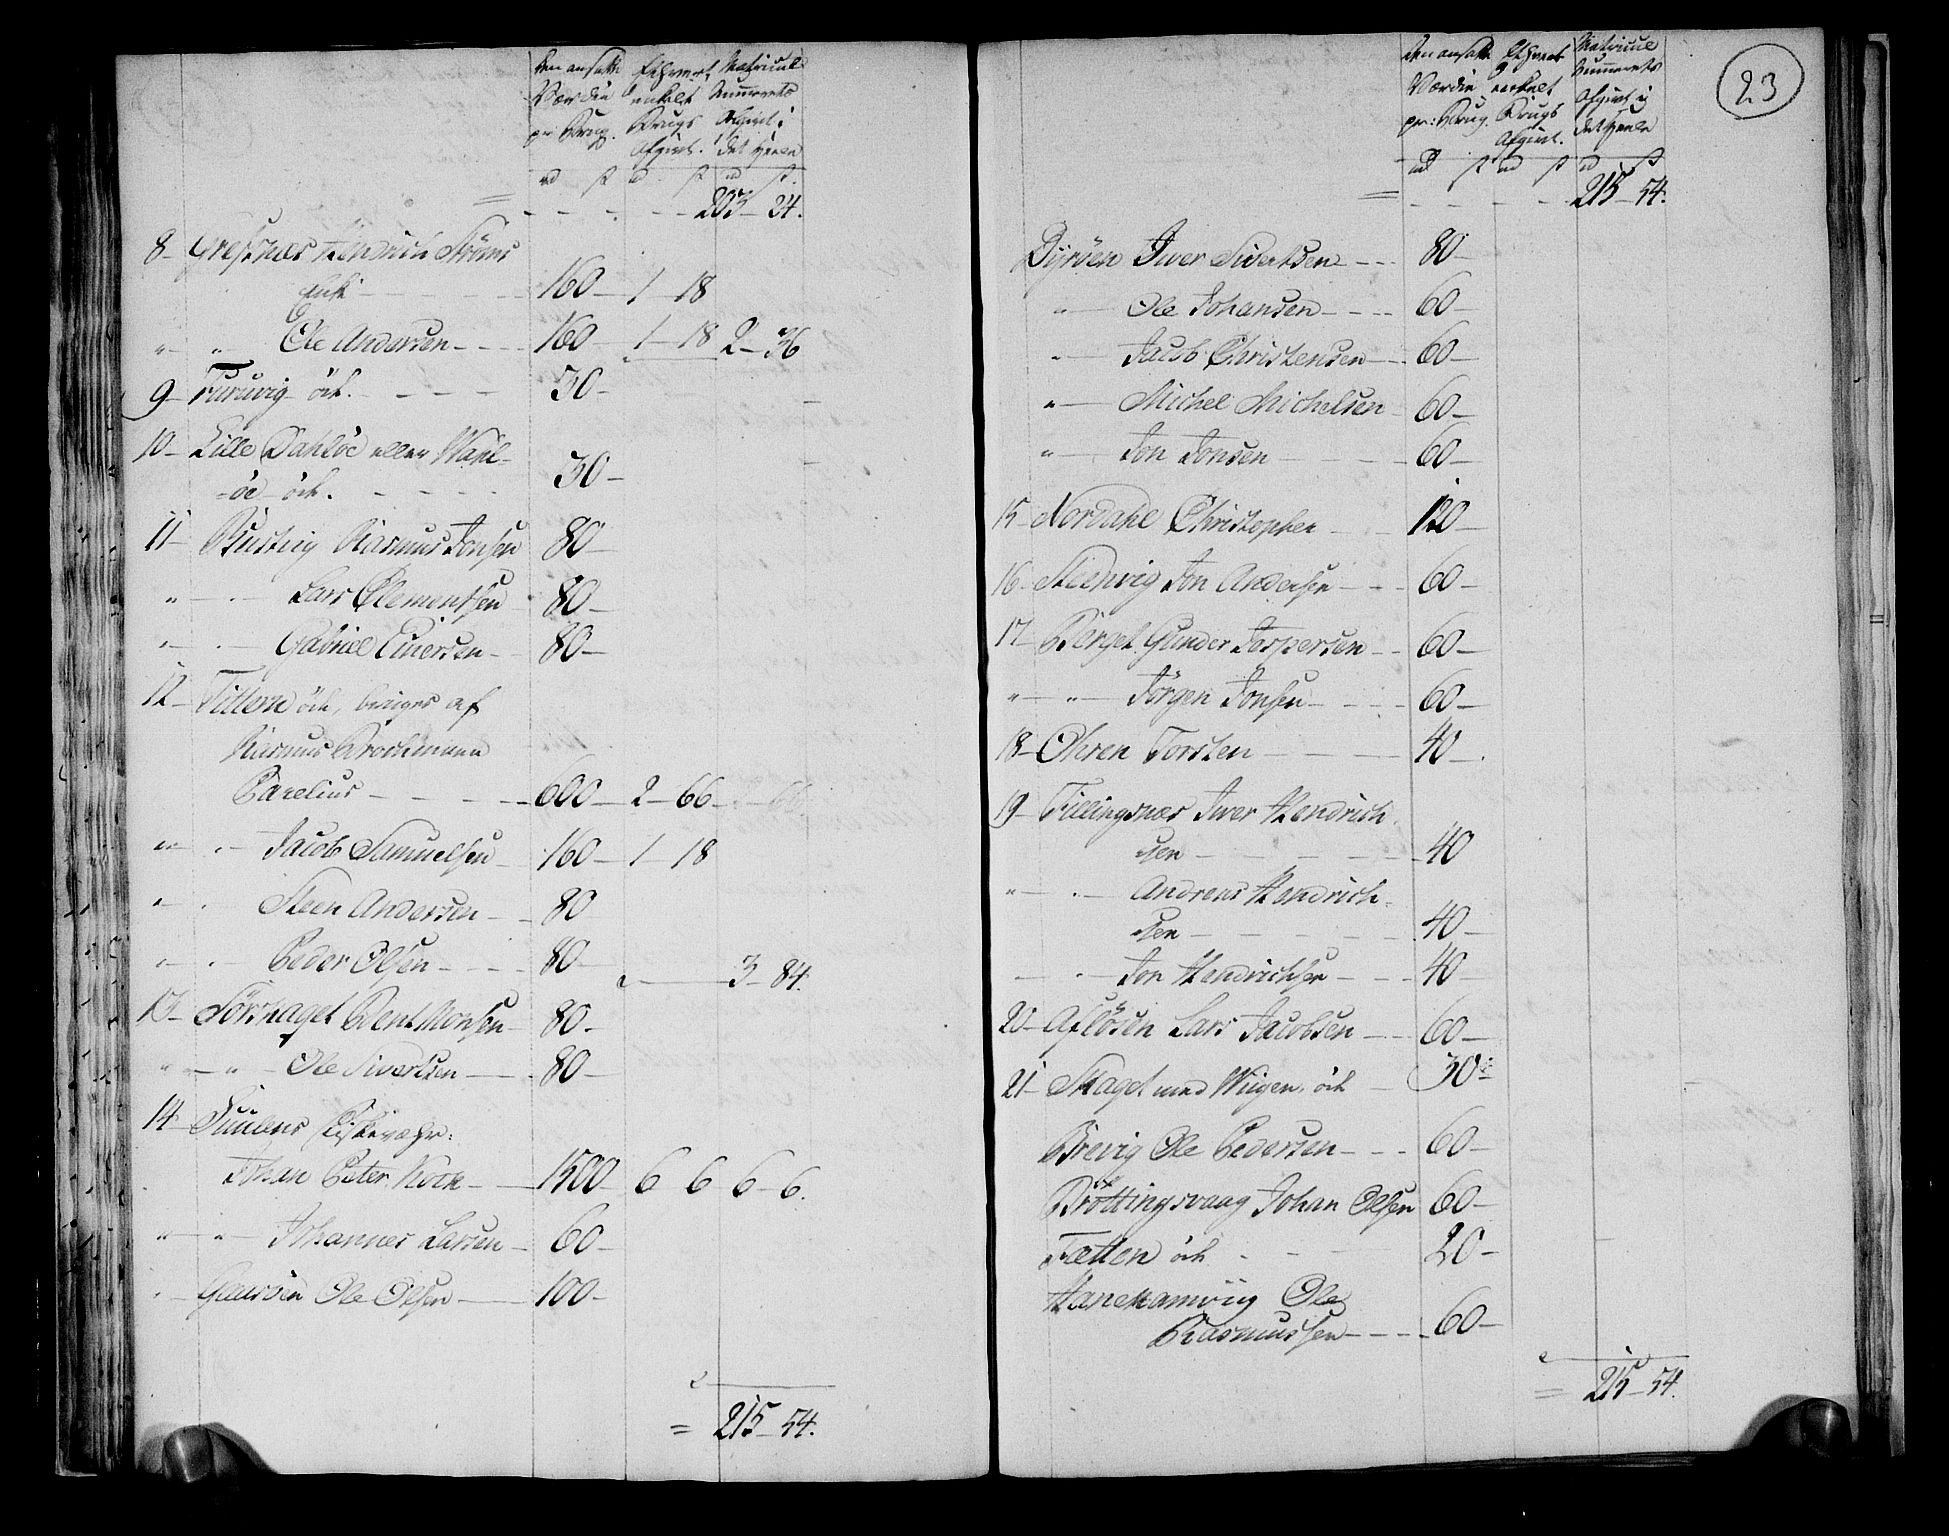 Den ansatte Værdie pr Brug.
Ethvert enkelt Brugs Afgivt.
Matricul Nummerets Afgivt i det Heele
rd ß rd ß rd ß
203 - 24.
8 - Grefsnes Hendrich Ströms
Enke - 160 - 1 - 18
" " Ole Andersen - 160 - 1 - 18 2 - 36
9 - Furuvig öde. - 30 -
10 - Lille Dahlöe eller Wahl-
=öe öde. - 30 -
11 - Bustvig Rasmus Jonsen 80 -
" - Lars Clementsen 80 -
" - Gabriel Einersen - 80 -
12 - Tittern öde, bruges af
Rasmus Brochmann
Parelius - 600 - 2 - 66
" - Jacob Samuelsen 160 - 1 - 18
" - Steen Andersen - 80
" - Peder Olsen - 80 - 3 - 84.
13 - Sörskaget Bent Monsen 80 -
" - " - Ole Sivertsen - 80 -
14 - Suulens Fiskevæhr:
Johan Peter Kock - 1500 - 6 6 6 - 6.
" - " - Johannes Larsen - 60 -
" - Gaursöen Ole Olsen - 100 -
= 215 - 54.
23
Den ansatte Værdie pr: Brug.
Ethvert enkelt Brugs Afgivt.
Matricul Nummerets Afgivt i det Heele
rd ß rd ß rd ß
= 215 - 54.
Dyröen Iver Sivertsen - 80 -
" - Ole Johansen - 60 -
" - Jacob Christensen - 60 -
" - Michel Michelsen 60 -
" - Jon Jonsen - 60 -
15 - Nordahl Christopher - 120 -
16 - Steenvig Jon Andersen - 60 -
17 - Berget Gunder Jespersen - 60 -
" - " - Jörgen Jonsen - 60 -
18 - Ohren Torsten - 40 -
19 - Tillingsnes Iver Hendrich
sen - 40
" - Andreas Hendrich-
sen - 40 -
- Jon Hendrichsen - 40 -
20 - Aflösen Lars Jacobsen - 60 -
21 - Skaget med Wiigen, öde - 30 -
Brevig Ole Pedersen - 60 -
Bröttingsvaag Johan Olsen 60 -
Tætten öde - 20 -
Hanekamviig Ole
Rasmussen - 60 -
= 215 - 54.